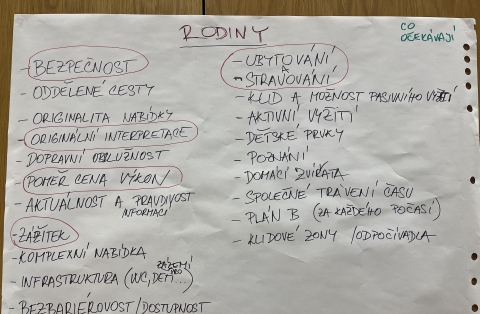 RODINY
CO
OČEKÁVAJÍ
- BEZPEČNOST
- ODDĚLENÉ CESTY
- ORIGINALITA NABÍDKY
- ORIGINÁLNÍ INTERPRETACE
- DOPRAVNÍ OBSLUŽNOST
- POMĚR CENA VÝKON
- AKTUÁLNOST A PRAVDIVOST
INFORMACÍ
- ZÁŽITEK
- KOMPLEXNÍ NABÍDKA
- INFRASTRUKTURA (WC, ZÁZEMÍ PRO DĚTI...)
- BEZBARIÉROVOST/DOSTUPNOST
- UBYTOVÁNÍ
A
- STRAVOVÁNÍ
- KLID A MOŽNOST PASIVNÍHO VYŽITÍ
- AKTIVNÍ VYŽITÍ
- DĚTSKÉ PRVKY
- POZNÁNÍ
- DOMÁCÍ ZVÍŘATA
- SPOLEČNÉ TRÁVENÍ ČASU
- PLÁN B (ZA KAŽDÉHO POČASÍ)
- KLIDOVÉ ZONY /ODPOČÍVADLA